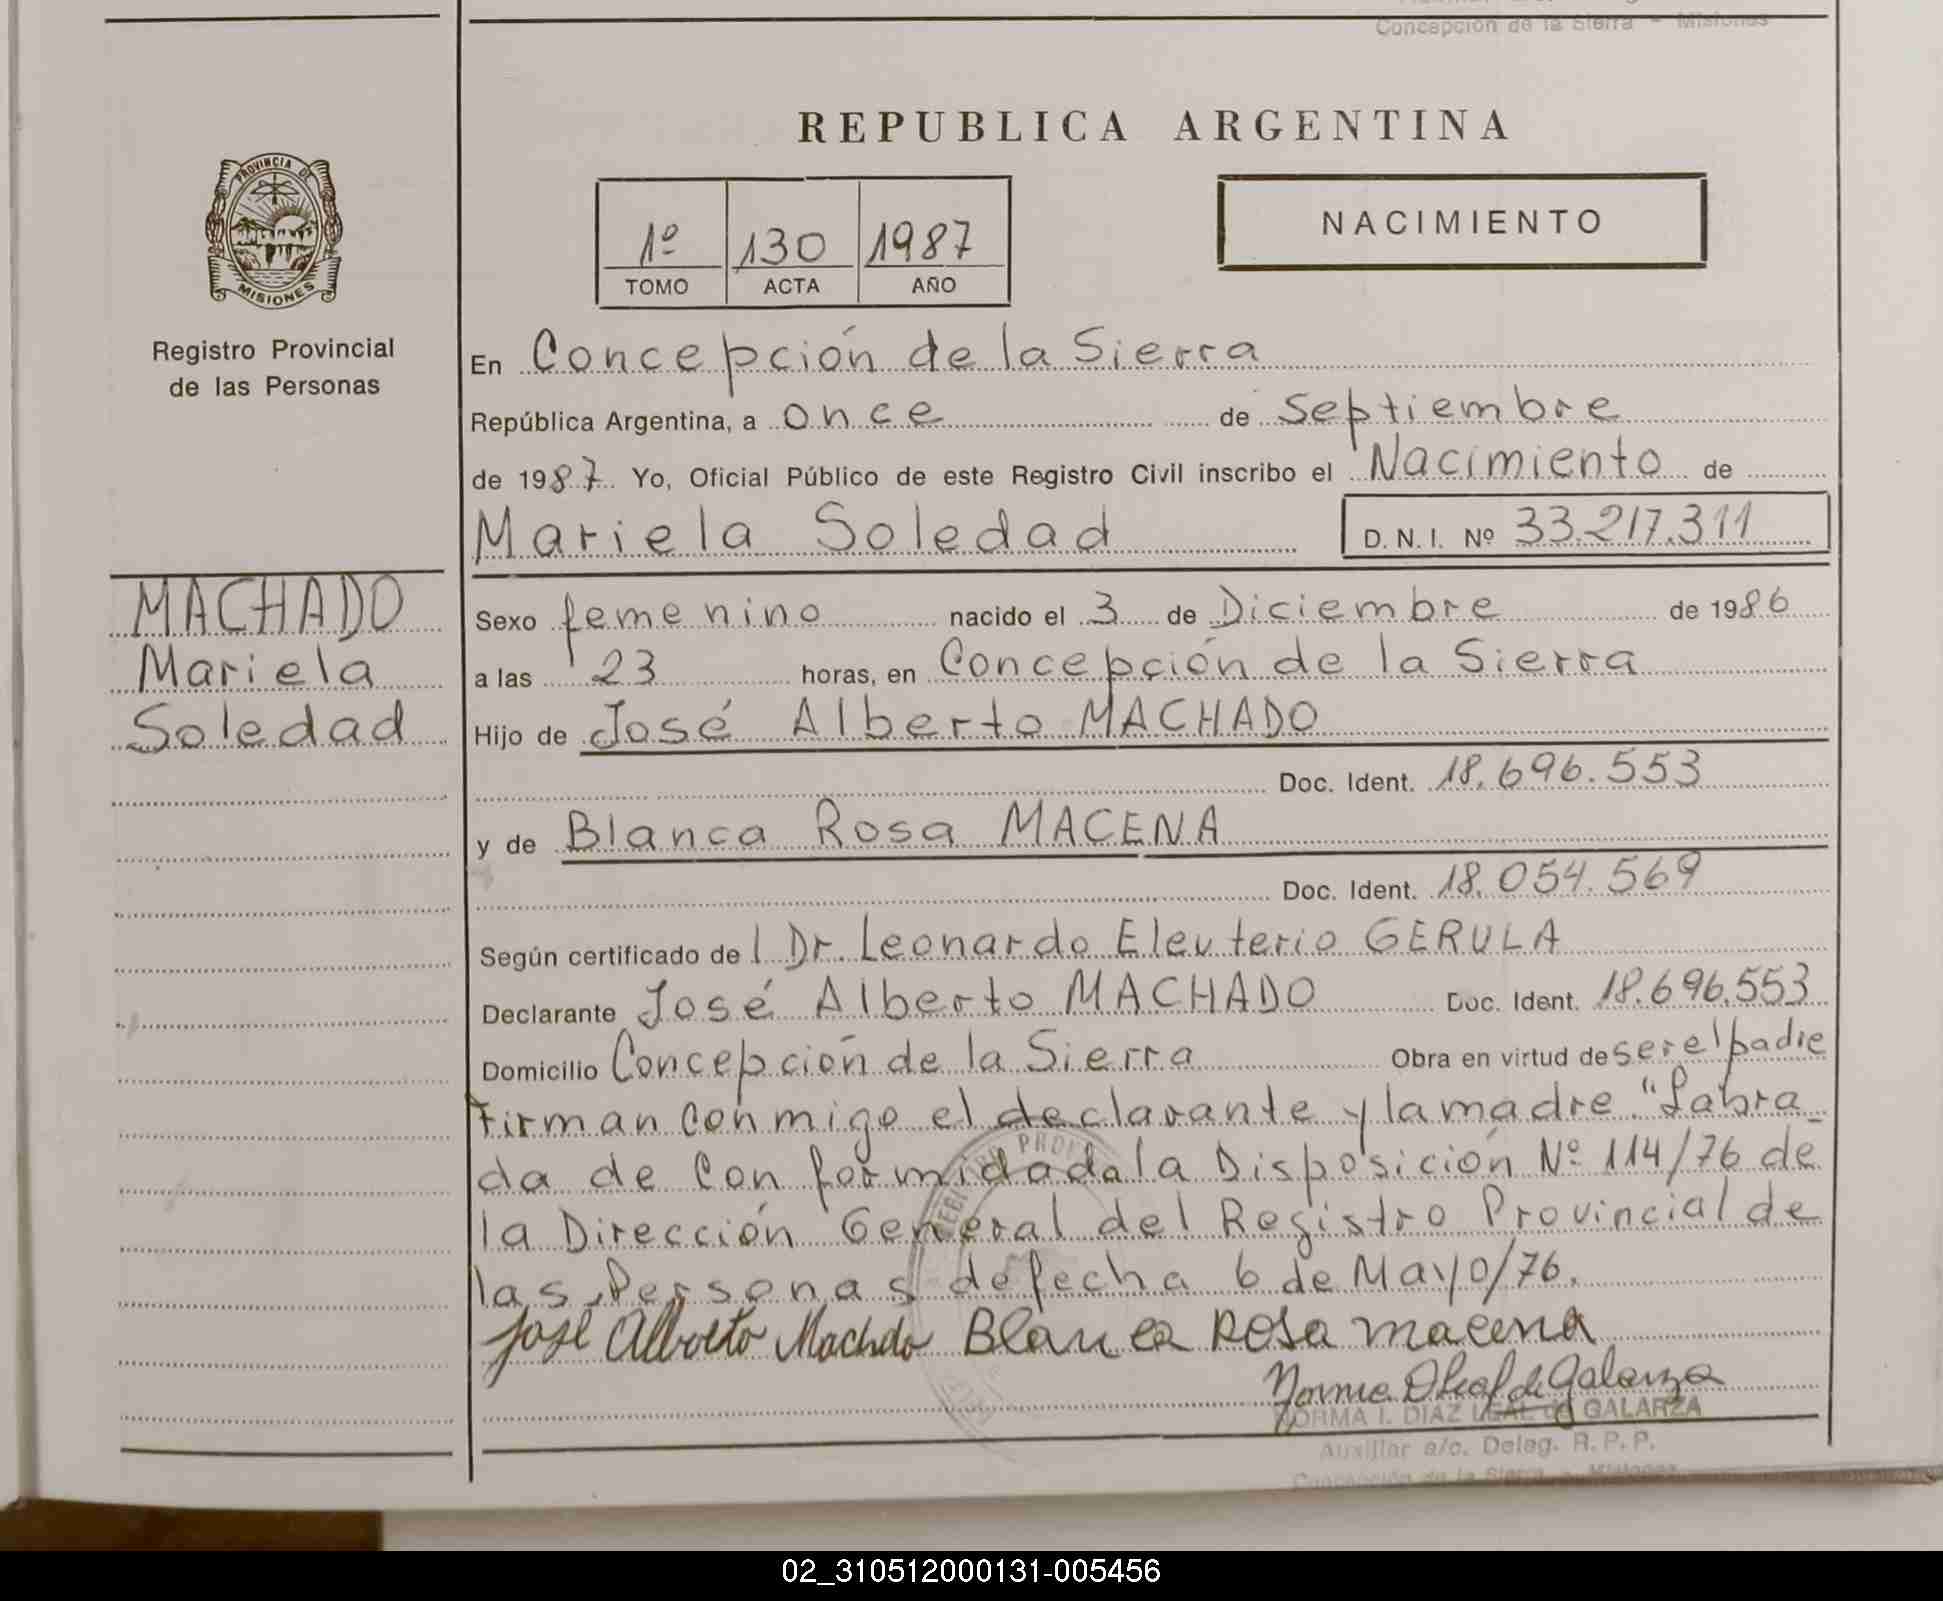 Concepción de la Sierra - Misiones
REPUBLICA ARGENTINA
PROVINCIA DE
MISIONES
Registro Provincial
de las Personas
1º 130 1987
TOMO ACTA AÑO
NACIMIENTO
En Concepción de la Sierra
República Argentina, a once de Septiembre
de 1987 Yo, Oficial Público de este Registro Civil inscribo el Nacimiento de
Mariela Soledad D.N.I. Nº 33.217.311
MACHADO
Mariela
Soledad
Sexo femenino nacido el 3 de Diciembre de 1986
a las 23 horas, en Concepción de la Sierra
Hijo de José Alberto MACHADO
Doc. Ident. 18.696.553
y de Blanca Rosa MACENA
Doc. Ident. 18.054.569
Según certificado de l Dr. Leonardo Eleuterio GERULA
Declarante José Alberto MACHADO Doc. Ident. 18.696.553
Domicilio Concepción de la Sierra Obra en virtud de ser el padre
Firman conmigo el declarante y la madre "Labra
da de Conformidad a la Disposición Nº 114/76 de
la Dirección General del Registro Provincial de
las Personas de fecha 6 de Mayo/76.
José Alberto Machado Blanca Rosa macena
Norma D Leal de Galarza
NORMA I. DIAZ LEAL de GALARZA
Auxiliar a/c. Deleg. R. P. P.
Concepción de la Sierra - Misiones
02_310512000131-005456